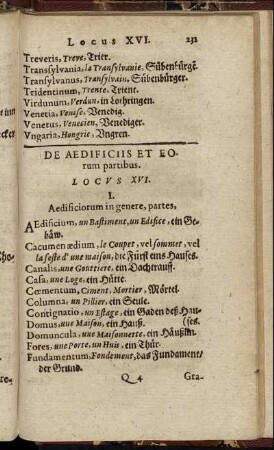 Locus XVI. 231
Treveris, Treve, Trier.
Transsylvania, la Transylvanie. Sübenbürgẽ.
Transylvanus, Transylvain, Sübenbürger.
Tridentinum, Trente. Trient.
Virdunum, Verdun, in Lothringen.
Venetia, Venise. Venedig.
Venetus, Venecien, Venediger.
Vngaria, Hongrie, Vngren.
DE AEDIFICIIS ET EO-
rum partibus.
LOCVS XVI.
I.
Aedificiorum in genere, partes,
AEdificium, un Bastiment, un Edifice, ein Ge-
bäw.
Cacumen ædium, le Coupet, vel sommet, vel
la feste d'une maison, die Fürst eins Hauses.
Canalis, une Gouttiere, ein Dachtrauff.
Casa, une Loge, ein Hütte.
Cœmentum, Ciment, Mortier, Mörtel.
Columna, un Pillier, ein Seule.
Contignatio, un Estage, ein Gaden deß Hau-
Domus, une Maison, ein Hauß. (ses.
Domuncula, une Maisonnette, ein Häußlin.
Fores, une Porte, un Huis, ein Thür.
Fundamentum, Fondement, das Fundament/
der Grund.
Q 4 Gra-